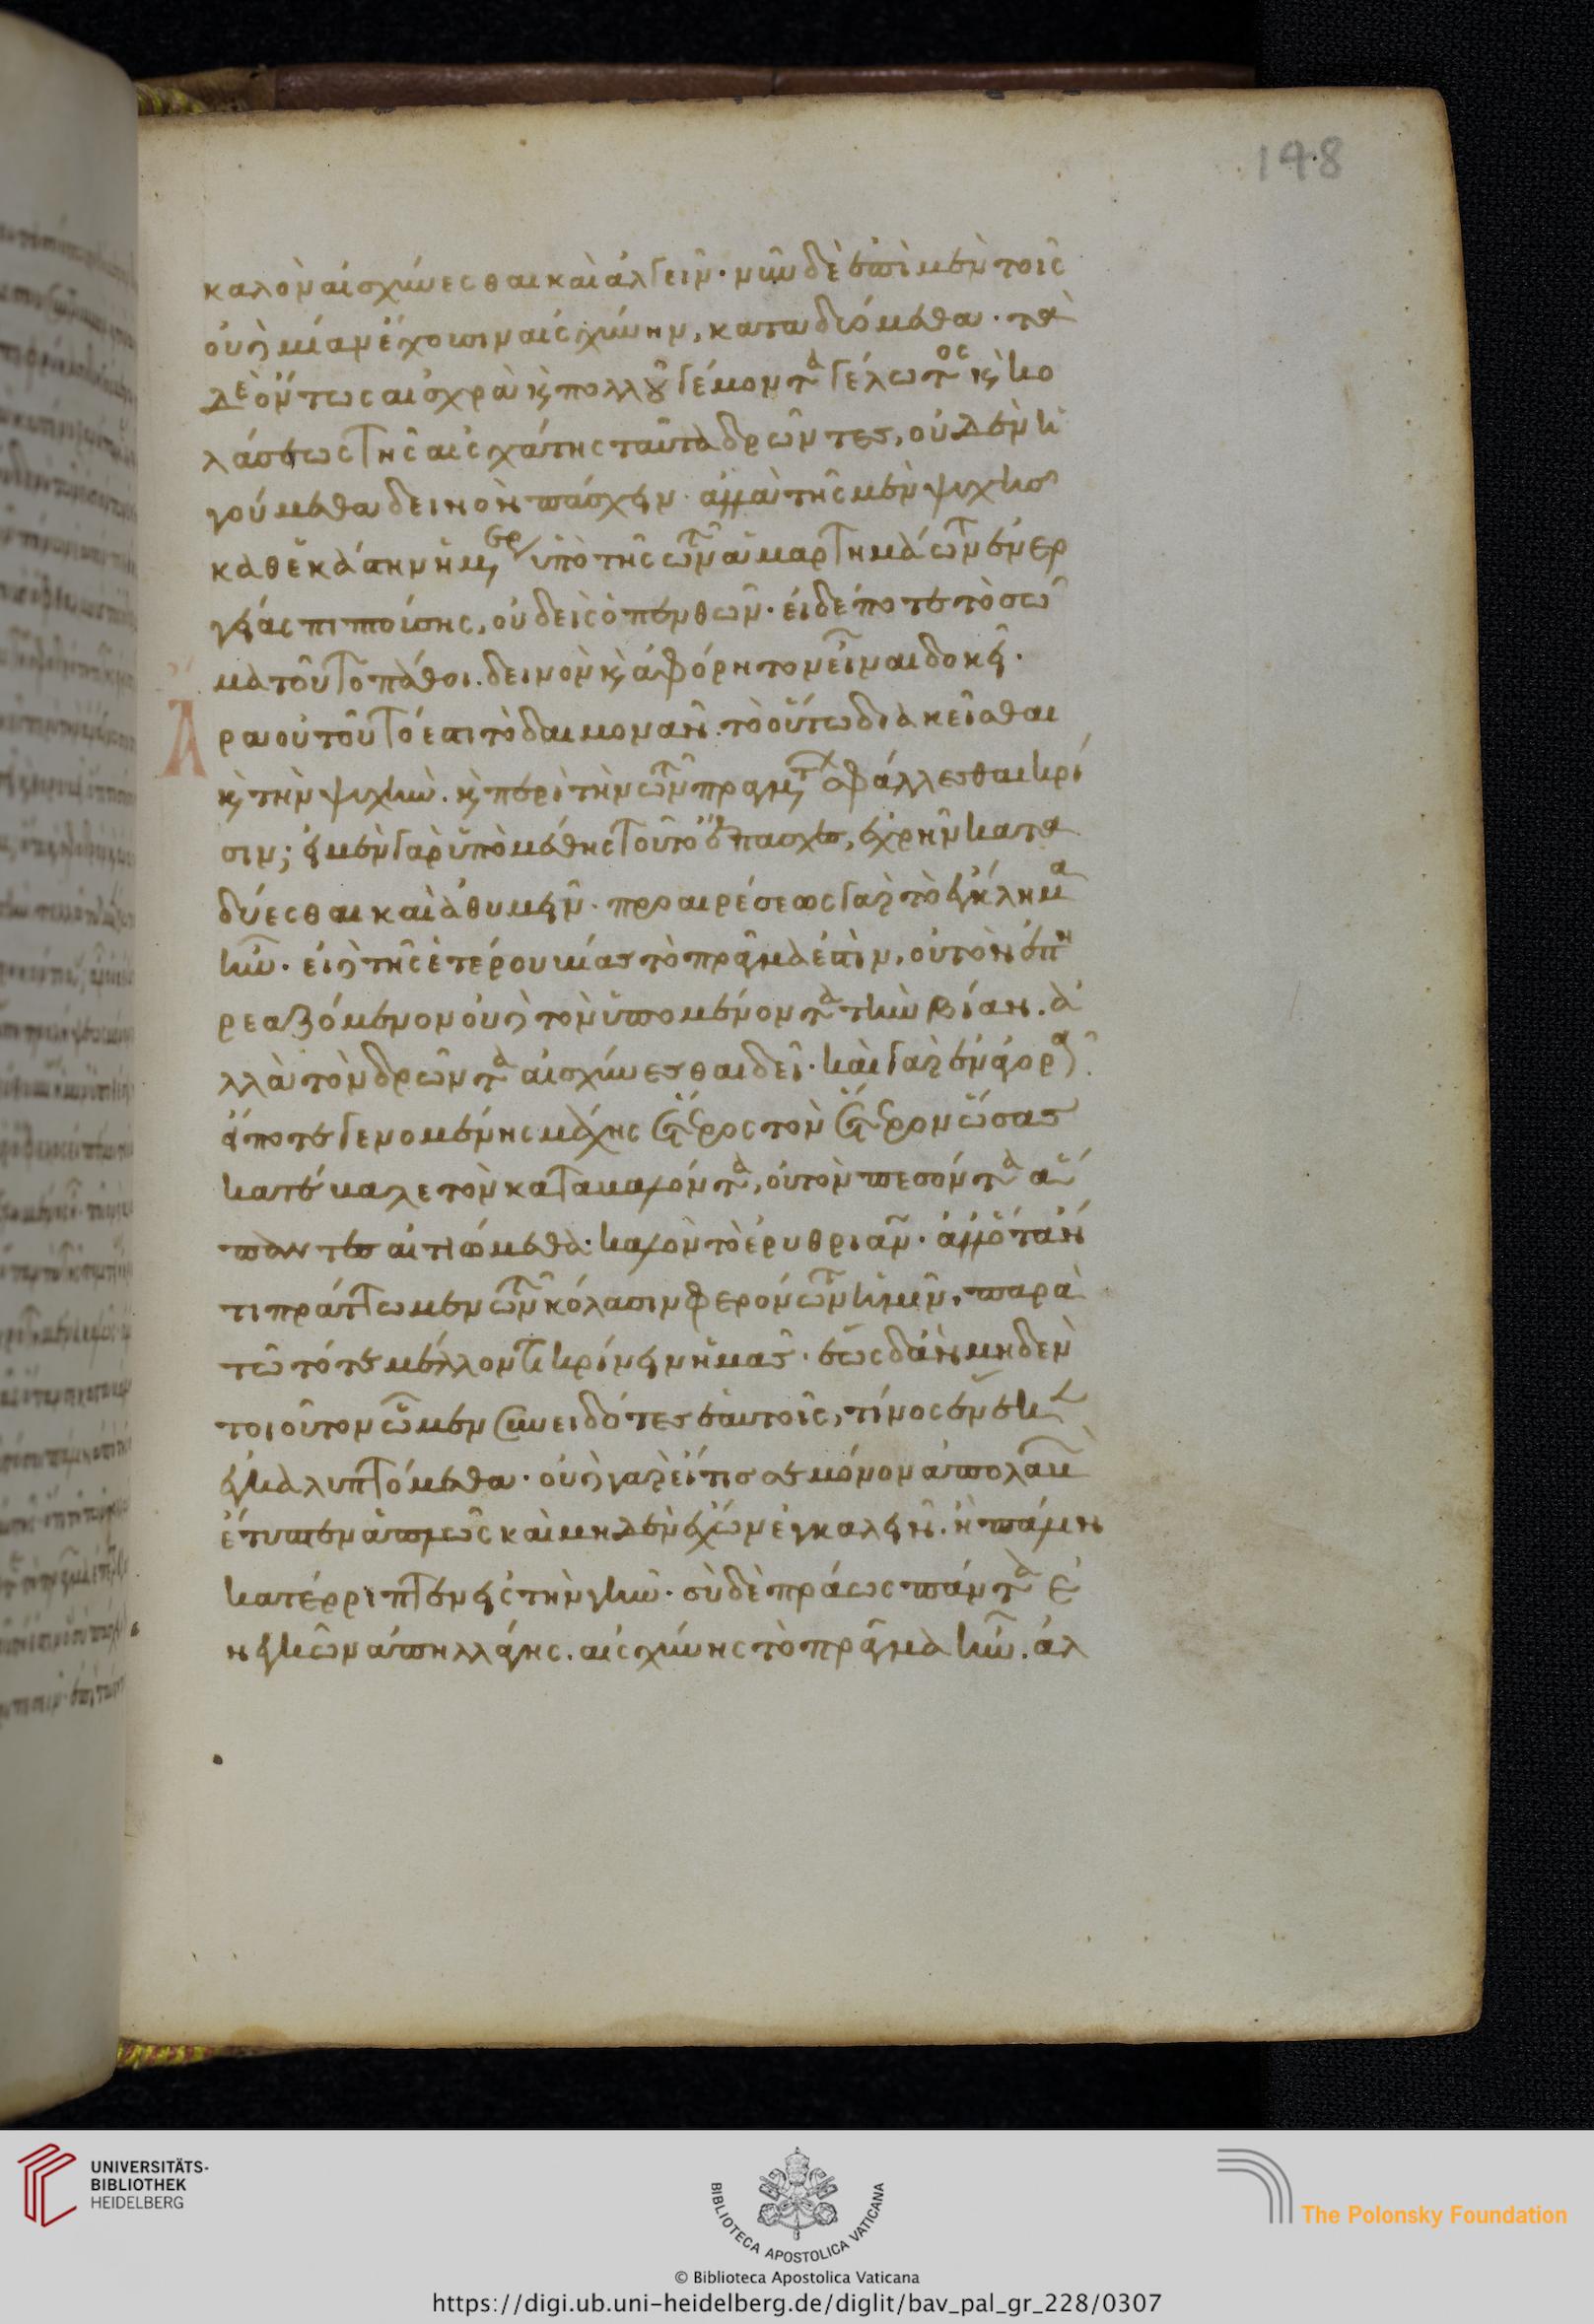 καλὸν αἰσχύνεσθαι καὶ ἀλγεῖν· νῦν δὲ ἐπὶ μὲν τοῖς
οὐδεμίαν ἔχουσιν αἰσχύνην, καταδυόμεθα· τὰ
δὲ ὄντως αἰσχρὰ καὶ πολλοῦ γέμοντα γέλωτος καὶ κο
λάσεως τῆς ἐσχάτης ταῦτα δρῶντες, οὐδὲν ἡ
γούμεθα δεινὸν πάσχειν· ἀλλὰ τῆς μὲν ψυχῆς
καθ ἑκάστην ἡμέραν ὑπὸ τῆς τῶν ἁμαρτημάτων ἐνερ
γείας πιπτούσης, οὐδεὶς ὁ πενθῶν· εἰ δέ ποτε τὸ σῶ
μα τοῦτο πάθοι. δεινὸν καὶ ἀφόρητον εἶναι δοκεῖ.
Ἆρα οὐ τοῦτό ἐστι τὸ δαιμονᾶν. τὸ οὕτω διακεῖσθαι
καὶ τὴν ψυχὴν. καὶ περὶ τὴν τῶν πραγμάτων σφάλλεσθαι κρί
σιν; εἰ μὲν γὰρ ὑπὸ μέθης τοῦτο ἔπασχες, ἐχρῆν κατα
δύεσθαι καὶ ἀθυμεῖν· προαιρέσεως γὰρ τὸ ἔγκλημα
ἦν. εἰ δὲ τῆς ἑτέρου βίας τὸ πρᾶγμά ἐστιν, οὐ τὸν ἐπη
ρεαζόμενον οὐδὲ τὸν ὑπομένοντα τὴν βίαν. ἀ
λλὰ τὸν δρῶντα αἰσχύνεσθαι δεῖ· καὶ γὰρ ἐν ἀγορᾷ.
εἴ ποτε γενομένης μάχης ἕτερος τὸν ἕτερον ὤσας
κατέβαλε τὸν καταβαλόντα, οὐ τὸν πεσόντα ἅ
παντες αἰτιώμεθα· καλὸν τὸ ἐρυθριᾶν· ἀλλ ὅταν
τι πράττωμεν τῶν κόλασιν φερόντων ἡμῖν, παρὰ
τῷ τότε μέλλοντι κρίνειν ἡμᾶς· ἕως δ ἂν μηδὲν
τοιοῦτον ὦμεν συνειδότες ἑαυτοῖς, τίνος ἕνεκεν
ἐγκαλυπτόμεθα· οὐδὲ γὰρ εἴ τις σε μόνον ἀπολαβὼν
ἔτυπτεν ἁπλῶς καὶ μηδὲν ἔχων ἐγκαλεῖν. ἢ πάλιν
κατέρριπτεν εἰς τὴν γῆν· σὺ δὲ πράως πάντα ἐ
νεγκὼν ἀπηλλάγης. αἰσχύνης τὸ πρᾶγμα ἦν. ἀλ
148
UNIVERSITÄTS-
BIBLIOTHEK
HEIDELBERG
BIBLIOTECA APOSTOLICA VATICANA
The Polonsky Foundation
© Biblioteca Apostolica Vaticana
https://digi.ub.uni-heidelberg.de/diglit/bav_pal_gr_228/0307